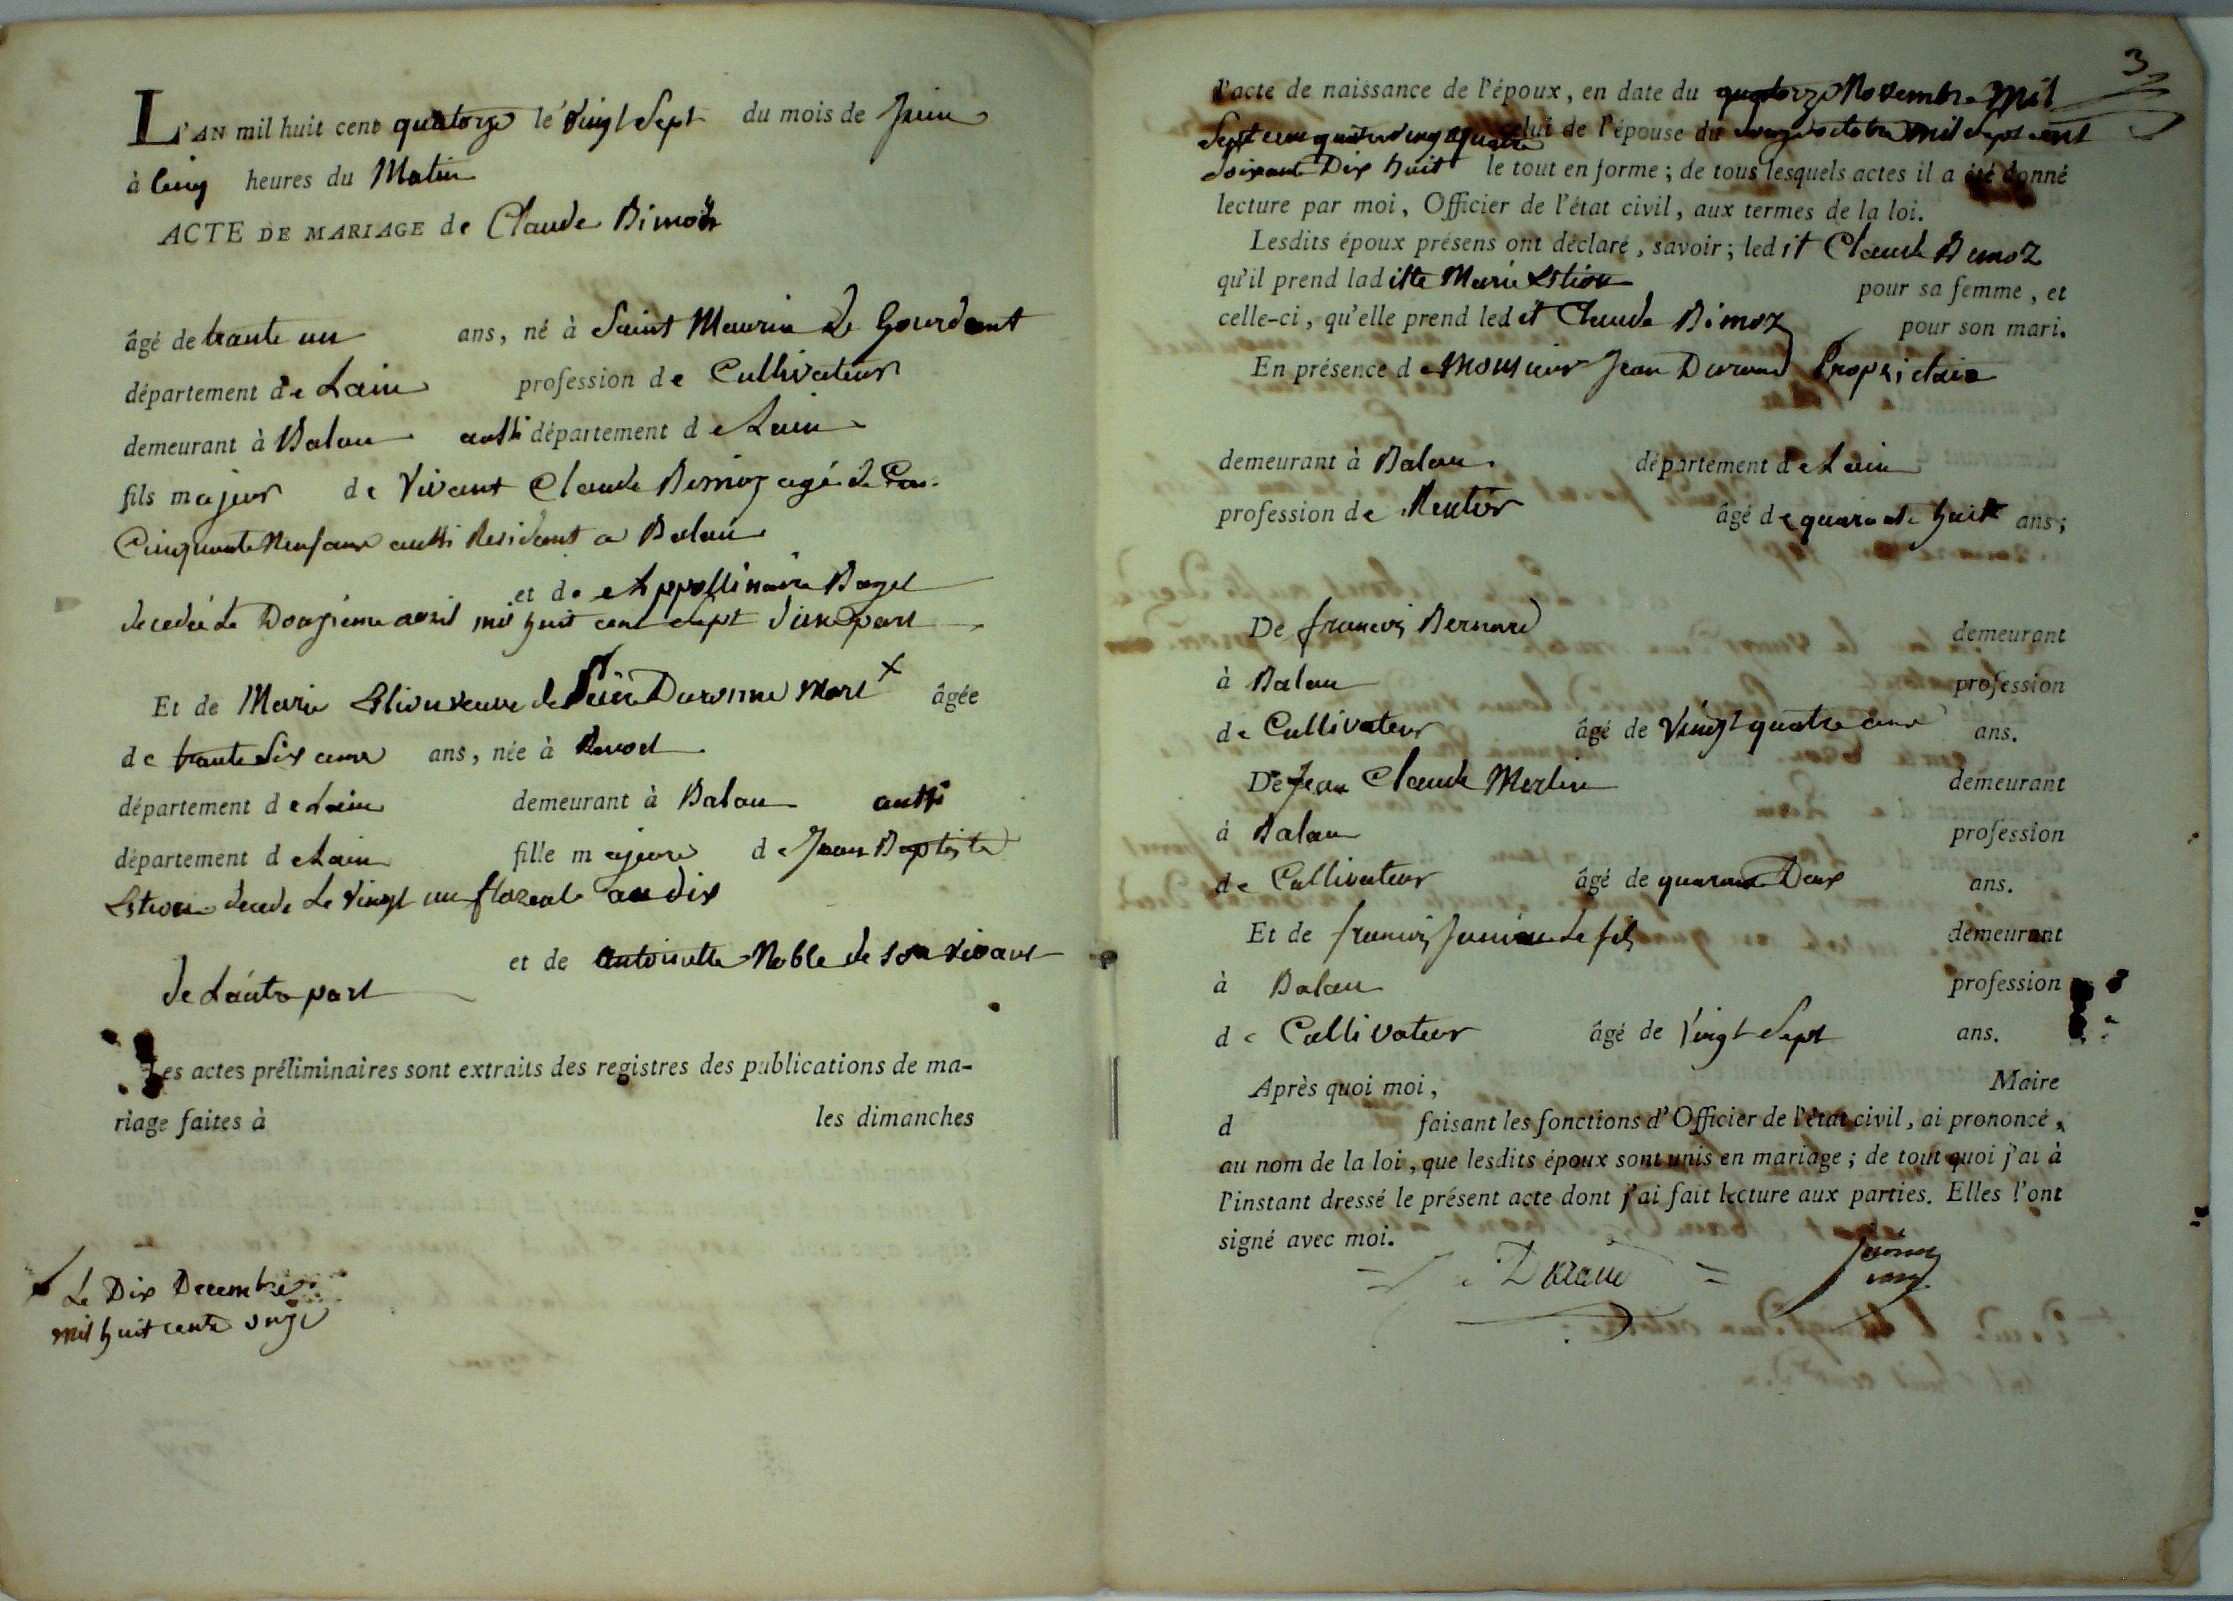 L'AN mil huit cent quatorze le vingt Sept du mois de Juin
à Cinq heures du Matin
ACTE DE MARIAGE de Claude Bimoz
âgé de trante un ans, né à Saint Maurice de Gourdant
département de Lain profession de Cultivateur
demeurant à Balan aussi département de Lain
fils majeur de Vivant Claude Bimoz agé de
Cinquante Neuf ans aussi Residant a Balan
et de Appollinaire Bagel
decedée le Douzieme avril mil huit cent sept d'une part
Et de Marie Stion veuve de Duronne Mort X âgée
de trante six ans ans, née à
département de Lain demeurant à Balan aussi
département de Lain fille majeure de Jean Baptiste
Stion decedé le vingt un floreal an dix
et de Antoinette Noble de son vivant
de Lautre part
Les actes préliminaires sont extraits des registres des publications de ma-
riage faites à les dimanches
Le Dix Decembre
mil huit cents onze
3
l'acte de naissance de l'époux, en date du quatorze Novembre Mil
Sept cent quatre vingt quatre celui de l'épouse du onze octobre mil sept cent
Soixante Dix huit le tout en forme; de tous lesquels actes il a été donné
lecture par moi, Officier de l'état civil, aux termes de la loi.
Lesdits époux présens ont déclaré, savoir; ledit Claude Bimoz
qu'il prend laditte Marie Stion pour sa femme, et
celle-ci, qu'elle prend ledit Claude Bimoz pour son mari.
En présence de Monsieur Jean Durand Propriétaire
demeurant à Balan département de Lain
profession de Rentier âgé de quarante huit ans;
De francois Bernard demeurant
à Balan profession
de Cultivateur âgé de Vingt quatre ans ans.
De Jean Claude Merlin demeurant
à Balan profession
de Cultivateur âgé de quarante Deux ans.
Et de francois le fils demeurant
à Balan profession
de Cultivateur âgé de Vingt Sept ans.
Après quoi moi, Maire
d faisant les fonctions d'Officier de l'état civil, ai prononcé,
au nom de la loi, que lesdits époux sont unis en mariage; de tout quoi j'ai à
l'instant dressé le présent acte dont j'ai fait lecture aux parties. Elles l'ont
signé avec moi.